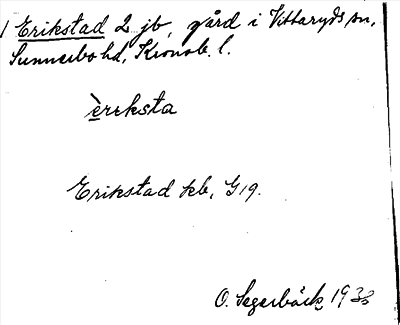 1 Erikstad 2 jb, gård i Vittaryds sn,
Sunnerbo hd, Kronob. l.
èrrksta
Erikstad kb, G19.
O. Segerbäck, 1933